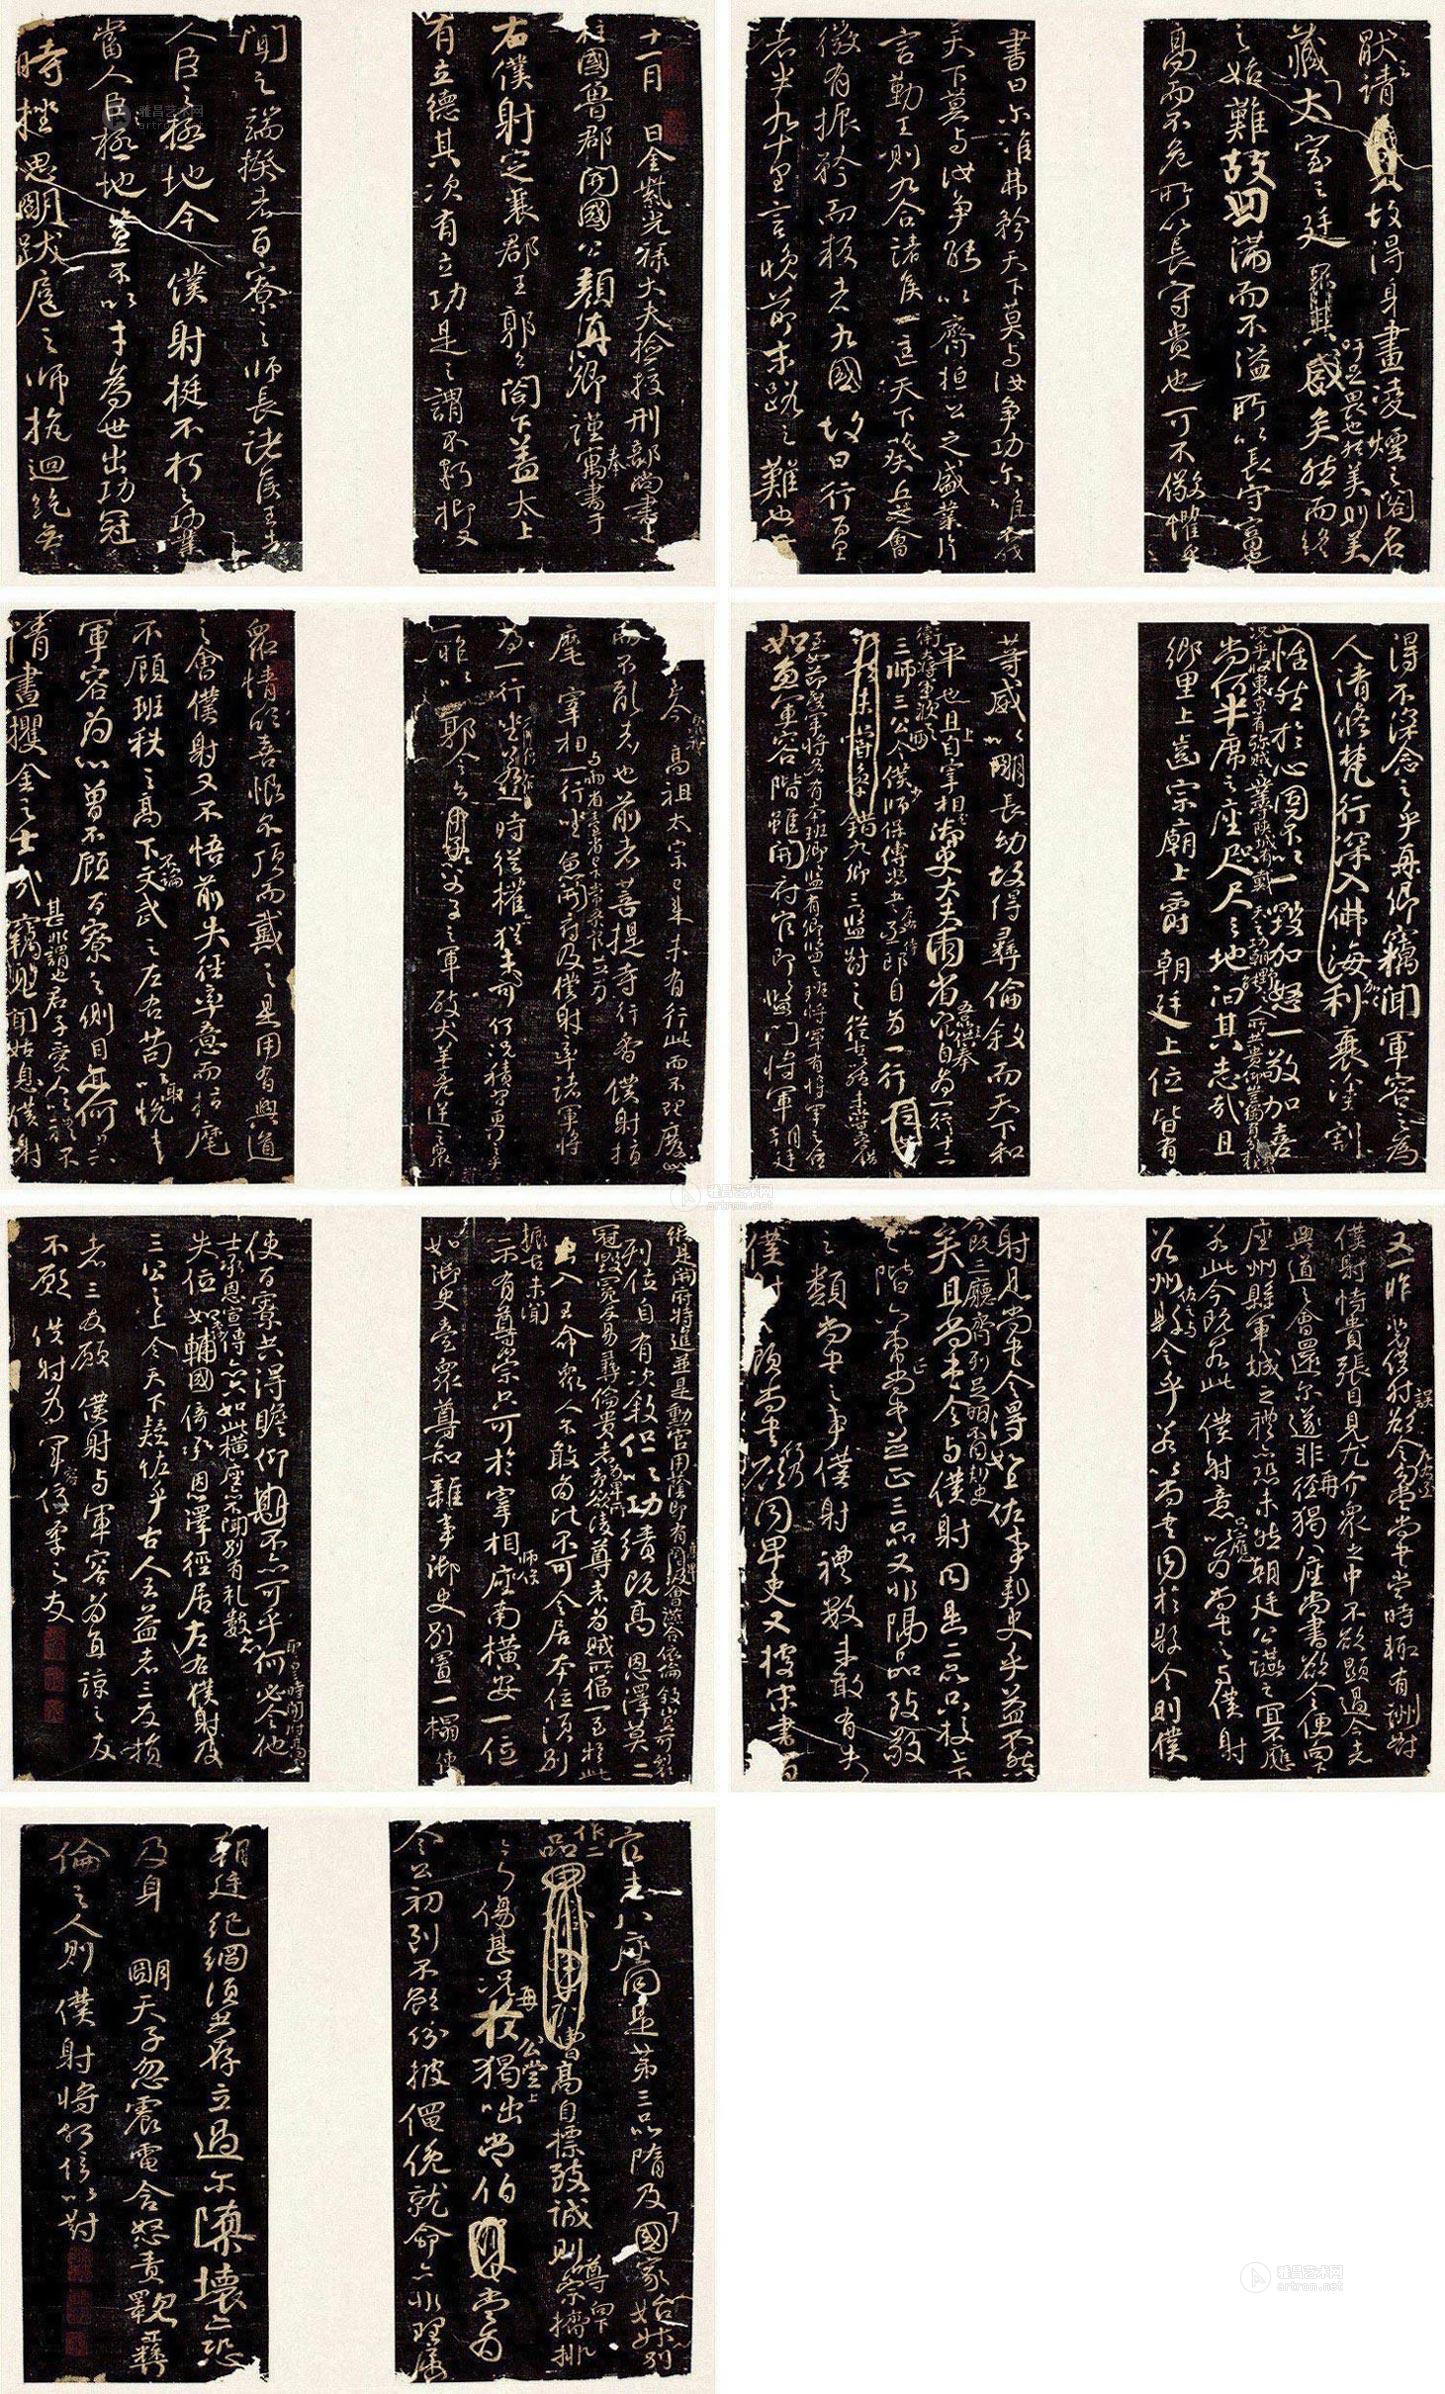 十一月　日金紫光祿大夫檢挍刑部尚書上
柱國魯郡開國公顏真卿謹奉寓書于
右僕射定襄郡王郭公閤下蓋太上
有立德其次有立功是之謂不朽抑又
聞之端揆者百寮之師長諸侯王者
人臣之極地今　僕射挺不朽之功業
當人臣極地豈不以才為世出功冠一
時挫思明跋扈之師抗迴紇無
猒之請　故得身畫凌煙之閣名
藏太室之廷吁足畏也然美則美
矣然而終
之始難故曰滿而不溢所以長守富
高而不危所以長守貴也可不儆懼乎
書曰尔唯弗矜天下莫与汝争功尔唯不伐
天下莫与汝争能以齊桓公之盛業片
言勤王則九合諸侯一匡天下葵丘之會
微有振矜而叛者九國故曰行百里
者半九十里言晚節末路之難也
從古至今　高祖太宗已来未有行此而不理廢此
而不亂者也前者菩提寺行香僕射指
麾　宰相与兩省臺省已下常參官並為一行坐魚開府及僕射率諸軍將
為一行坐若一時從權亦猶未可何況積習更行之乎
一昨以郭令公以父子之軍破犬羊兇逆之眾
眾情欣喜恨不頂而戴之是用有興道
之會僕射又不悟前失徑率意而指麾
不顧班秩之高下不論文武之左右苟以取悅
軍容為心曾不顧百寮之側目亦何異
清晝攫金之士哉甚非謂也君子愛人以禮不竊見聞姑息僕射
得不深念之乎真卿竊聞軍容之為
人清修梵行深入佛海
況乎收東京有殄賊之業守陝城有戴天之功朝野之人所共貴仰豈獨有分於僕射哉
加以利衰塗割
恬然於心固不以一毀加怒一敬加喜
尚何半席之座咫尺之地汩其志哉且
鄉里上齒宗廟上爵朝廷上位皆有
等威以明長幼故得彝倫敘而天下和
平也且上自宰相御史大夫兩省五品以上供奉官自為一行十二
衛大將軍次之
三師三公令僕少師保傅尚書左右丞侍郎自為一行
九卿三監對之從古以然未嘗參錯
至如節度軍將各有本班卿監有卿監之班將軍有將軍之位
如魚軍容階雖開府官即監門將軍朝廷
縱是開府特進並是勳官用蔭即有高卑會讌合依倫敘豈可裂
列位自有次敘但以功績既高　恩澤莫二
冠毀冕反易彝倫貴者為卑所凌尊者為賊所偪一至於此
振古未聞
出入王命眾人不敢為比不可令居本位須別
示有尊崇只可於宰相師保座南橫安一位
如御史臺眾尊知雜事御史別置一榻使
使百寮共得瞻仰不亦可乎聖皇時開府高力
士承恩宣傳亦只如此橫座亦不聞別有禮數亦何必令他
失位如李輔國倚承恩澤徑居左右僕射及
三公之上令天下疑怪乎古人云益者三友損
者三友願　僕射与軍容為直諒之友
不願　僕射為軍容佞柔之友
又一昨裴僕射誤欲令左右丞勾當尚書當時輒有酬對
僕射恃貴張目見尤介眾之中不欲顯過今者
興道之會還尔遂非再猲八座尚書欲令便向下
座州縣軍城之禮亦恐未然朝廷公讌之宜不應
若此今既若此僕射意只應以為尚書之与僕射
若州佐之与縣令乎若以尚書同於縣令則僕
射見尚書令得如上佐事刺史乎益不然
矣且尚書令与僕射同是二品只挍上下
今既三廳齊列足明不同刺史
之階六曹尚書並正三品又非隔品致敬
之類尚書之事僕射禮數未敢有失
僕射之顧尚書何乃欲同卑吏又據宋書百
官志八座同是第三品隋及國家始升別
作二品高自標致誠則尊崇向下擠排
無乃傷甚況再於公堂猲咄常伯當為
令公初到不欲紛披僶俛就命亦非理屈
朝廷紀綱須共存立過尔隳壞亦恐
及身　明天子忽震電含怒責斁彝
倫之人則僕射將何辭以對
雅昌艺术网
artron.net